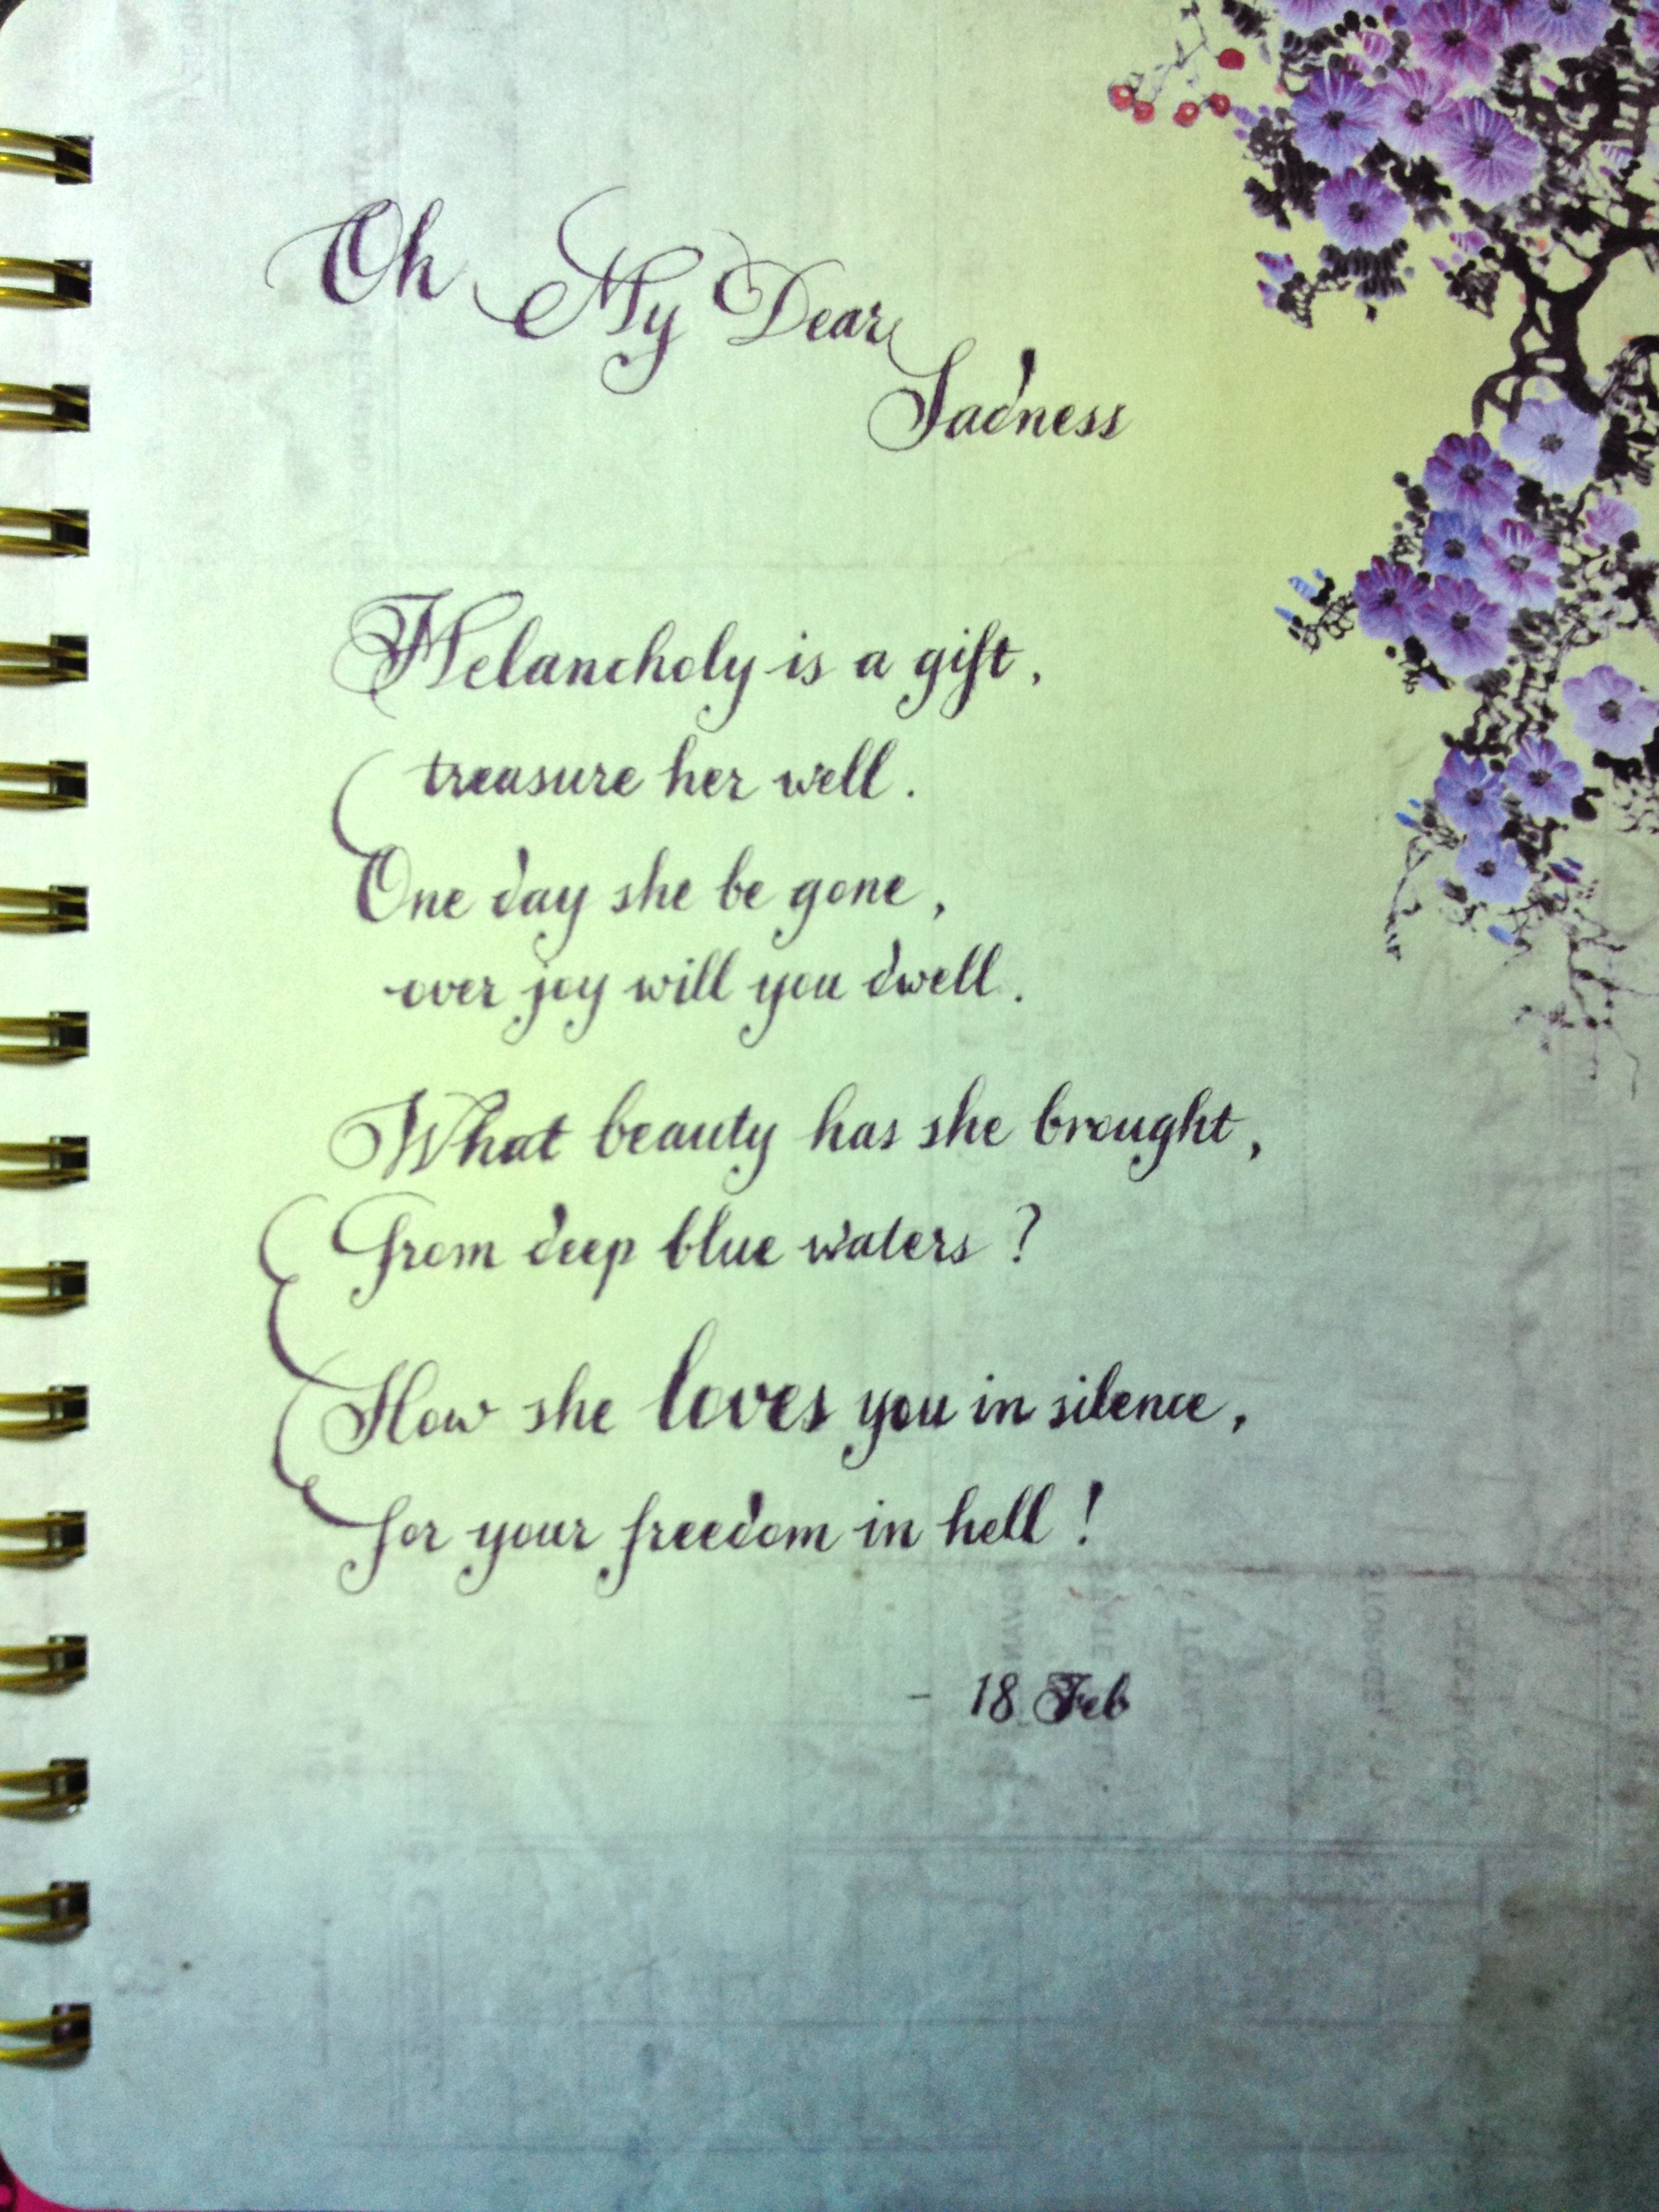 Oh My Dear
Sadness
Melancholy is a gift,
treasure her well.
One day she be gone,
over joy will you dwell.
What beauty has she brought,
From deep blue waters?
How she loves you in silence,
for your freedom in hell!
- 18 Feb